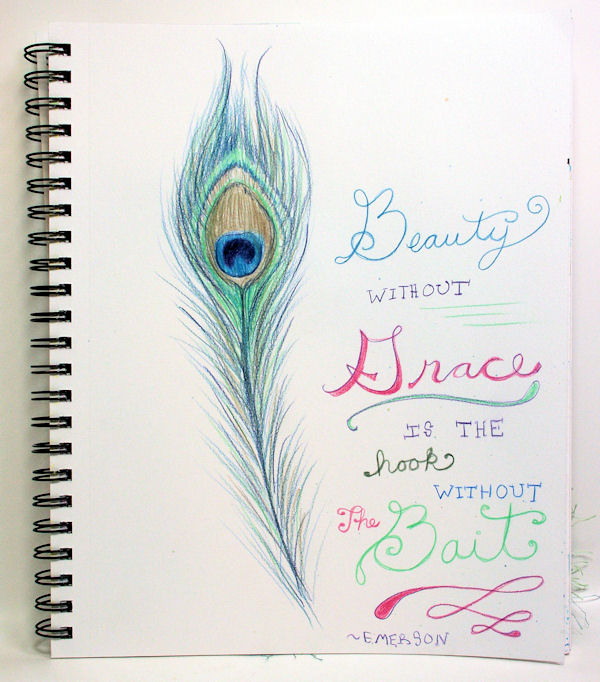 Beauty
WITHOUT
Grace
IS THE
hook
WITHOUT
The Bait
~EMERSON